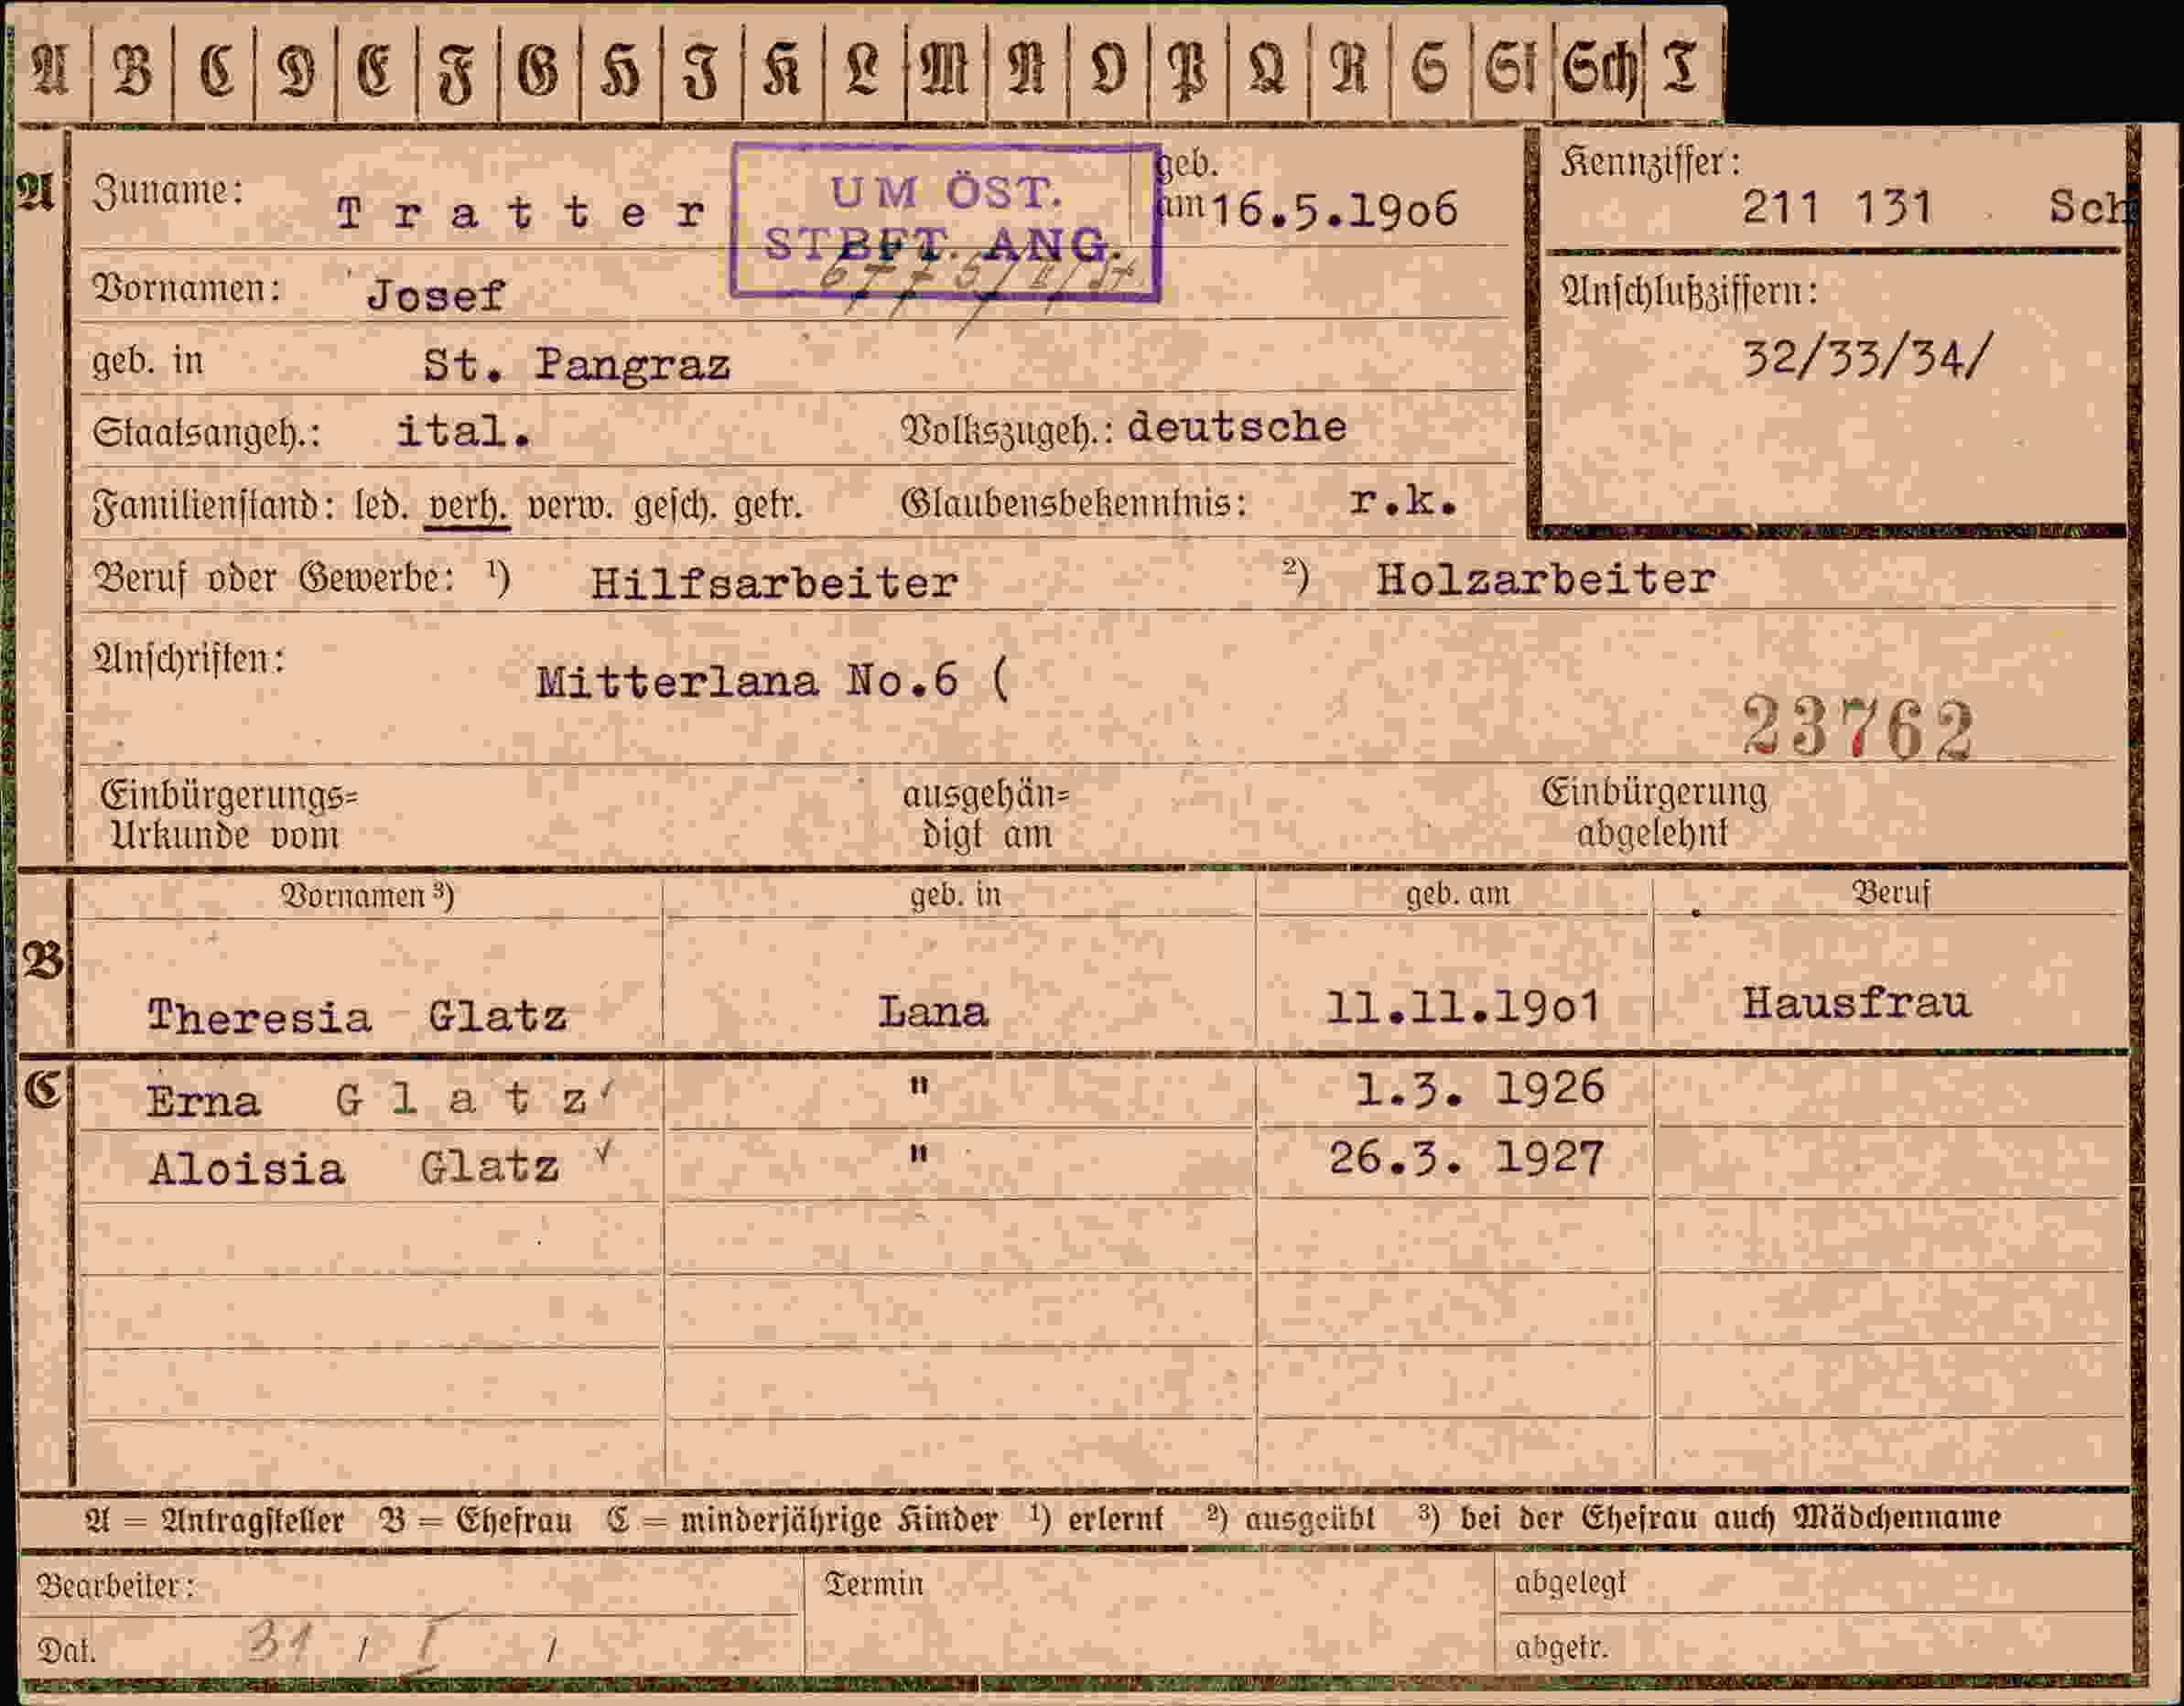 A B C D E F G H J K L M N O P Q R S St Sch T
A Zuname: Tratter geb. am 16.5.19o6 Kennziffer: 211 131 Sch
UM ÖST. STBFT. ANG.
Vornamen: Josef Anschlußziffern:
geb. in St. Pangraz 32/33/34/
Staatsangeh.: ital. Volkszugeh.: deutsche
Familienstand: led. verh. verw. gesch. getr. Glaubensbekenntnis: r.k.
Beruf oder Gewerbe: ¹) Hilfsarbeiter ²) Holzarbeiter
Anschriften: Mitterlana No.6 (
23762
Einbürgerungs= ausgehän= Einbürgerung
Urkunde vom digt am abgelehnt
Vornamen ³) geb. in geb. am Beruf
B Theresia Glatz Lana 11.11.19o1 Hausfrau
C Erna Glatz " 1.3. 1926
Aloisia Glatz " 26.3. 1927
A = Antragsteller B = Ehefrau C = minderjährige Kinder ¹) erlernt ²) ausgeübt ³) bei der Ehefrau auch Mädchenname
Bearbeiter: Termin abgelegt
Dat. 31 / I / abgetr.